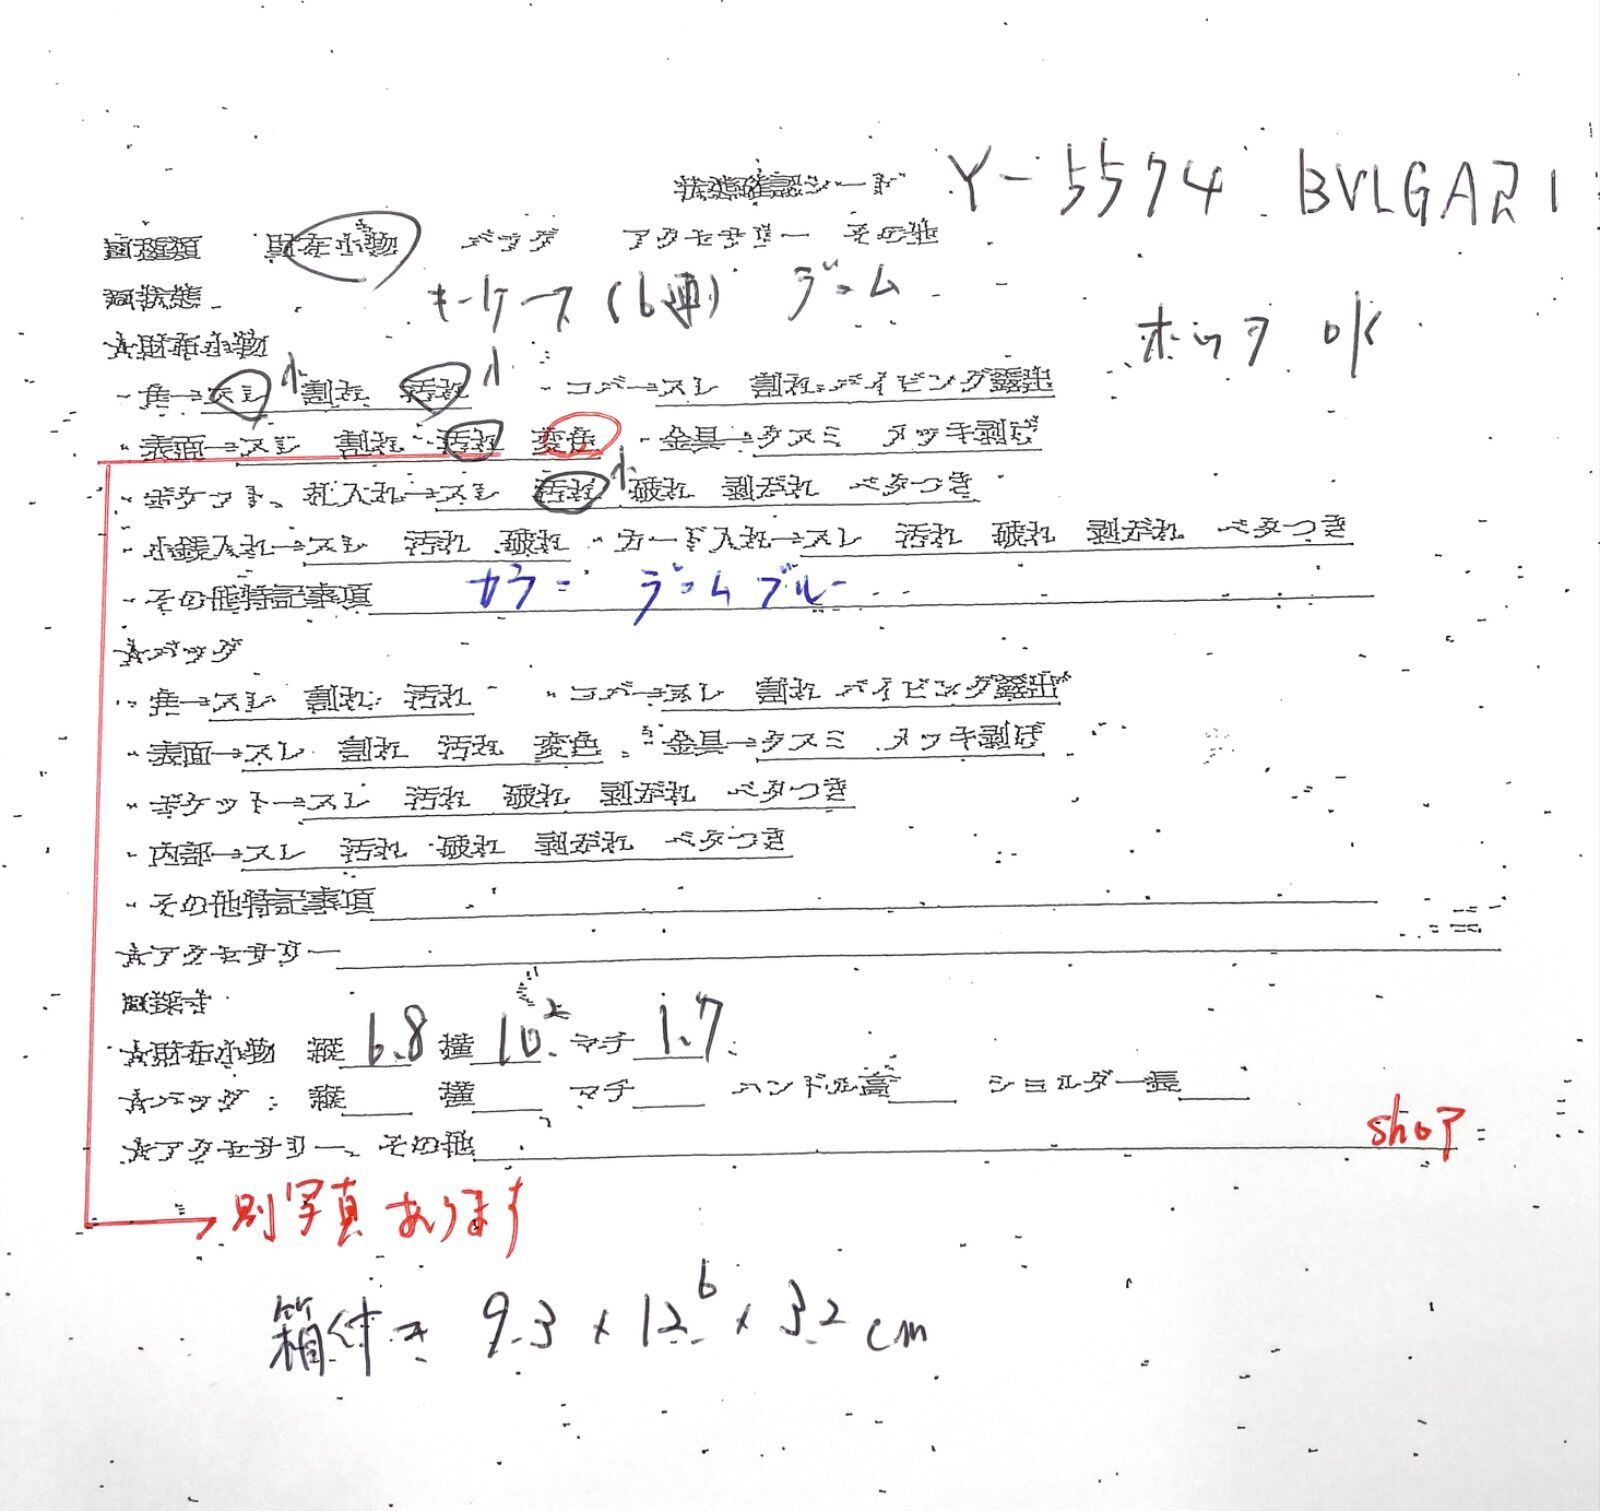 状態確認シート Y-5574 BVLGARI
■種類 財布小物 バッグ アクセサリー その他
■状態 キーケース(6連) デニム
ホック OK
☆財布小物
・角→スレ小 割れ 汚れ小 ・コバ→スレ 割れ パイピング露出
・表面→スレ 割れ 汚れ 変色 ・金具→クスミ メッキ剥げ
・ポケット、札入れ→スレ 汚れ小 破れ 剥がれ ベタつき
・小銭入れ→スレ 汚れ 破れ ・カード入れ→スレ 汚れ 破れ 剥がれ ベタつき
・その他特記事項 カラー デニムブルー
☆バッグ
・角→スレ 割れ 汚れ ・コバ→スレ 割れ パイピング露出
・表面→スレ 割れ 汚れ 変色 ・金具→クスミ メッキ剥げ
・ポケット→スレ 汚れ 破れ 剥がれ ベタつき
・内部→スレ 汚れ 破れ 剥がれ ベタつき
・その他特記事項
☆アクセサリー
■採寸
☆財布小物 縦 6.8 横 10.2 マチ 1.7
☆バッグ 縦 横 マチ ハンドル高 ショルダー長
☆アクセサリー、その他 shop
→別写真あります
箱付き 9.3 x 12.6 x 3.2 cm